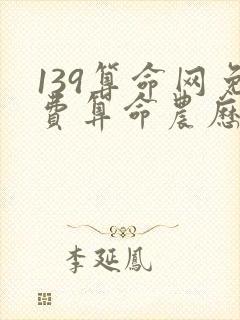 139算命网免
費算命農歷
李延鳳